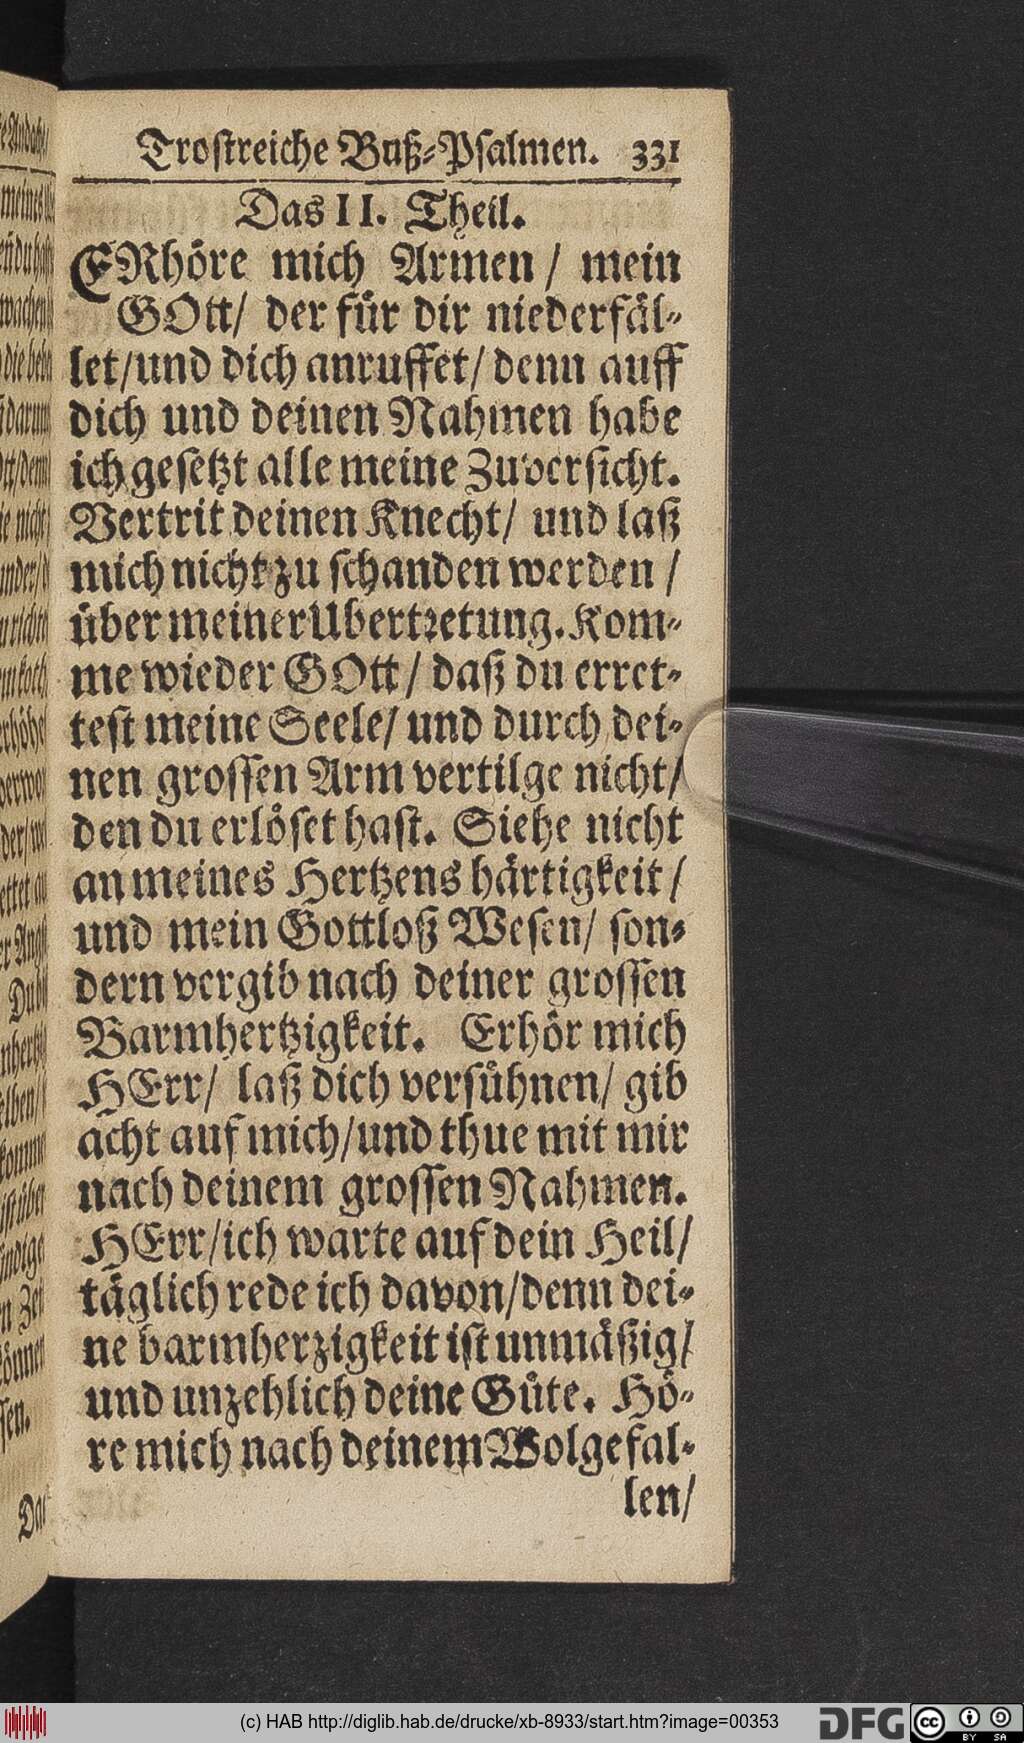 Trostreiche Buß-Psalmen. 331
Das II. Theil.
ERhöre mich Armen / mein
GOtt/ der für dir niederfäl-
let/und dich anruffet/ denn auff
dich und deinen Nahmen habe
ich gesetzt alle meine Zuversicht.
Vertrit deinen Knecht/ und laß
mich nicht zu schanden werden /
über meiner Ubertretung. Kom-
me wieder GOtt / daß du erret-
test meine Seele/ und durch dei-
nen grossen Arm vertilge nicht/
den du erlöset hast. Siehe nicht
an meines Hertzens härtigkeit /
und mein Gottloß Wesen/ son-
dern vergib nach deiner grossen
Barmhertzigkeit. Erhör mich
HErr/ laß dich versühnen/ gib
acht auf mich/und thue mit mir
nach deinem grossen Nahmen.
HErr/ich warte auf dein Heil/
täglich rede ich davon/denn dei-
ne barmherzigkeit ist unmäßig/
und unzehlich deine Güte. Hö-
re mich nach deinem Wolgefal-
len/
(c) HAB http://diglib.hab.de/drucke/xb-8933/start.htm?image=00353
DFG
cc BY SA